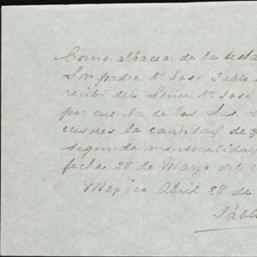 Como albacea de la testa
Sor padre Dn. José Pablo
recibí del Señor Dn. José
por cuenta de los Sres.
la cantidad de
segunda mensualidad
fecha 28 de Marzo del
Mexico Abril 28 de
Pablo